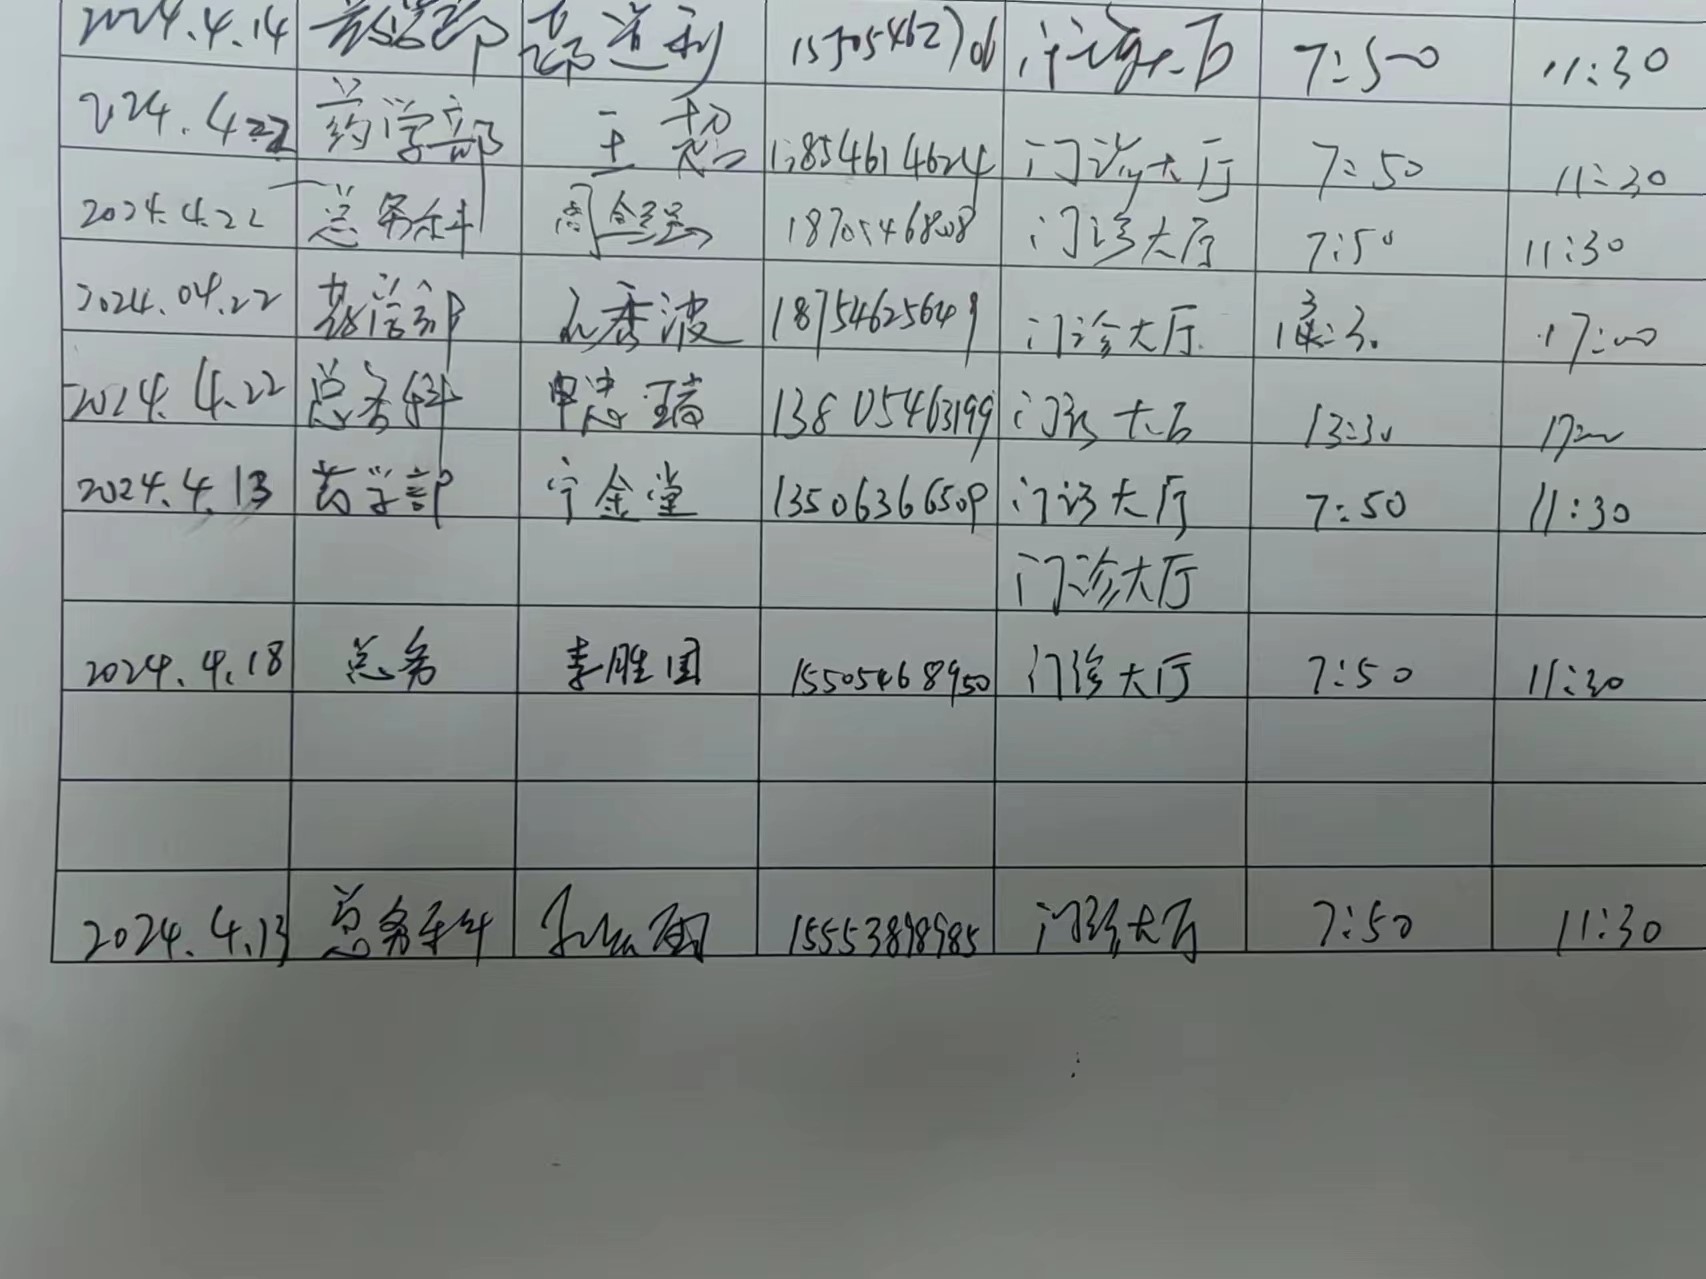 2024.4.14 药学部 道利 门诊大厅 7:50 11:30
2024.4.22 药学部 王 1854614624 门诊大厅 7:50 11:30
2024.4.22 总务科 周 门诊大厅 7:50 11:30
2024.04.22 药学部 秀波 18754625649 门诊大厅 13:30 17:00
2024.4.22 总务科 瑞 13805463199 门诊大厅 13:30 17:00
2024.4.13 药学部 宁金堂 13506366509 门诊大厅 7:50 11:30
门诊大厅
2024.4.18 总务 李胜国 15505468950 门诊大厅 7:50 11:30
2024.4.13 总务科 15553898985 门诊大厅 7:50 11:30